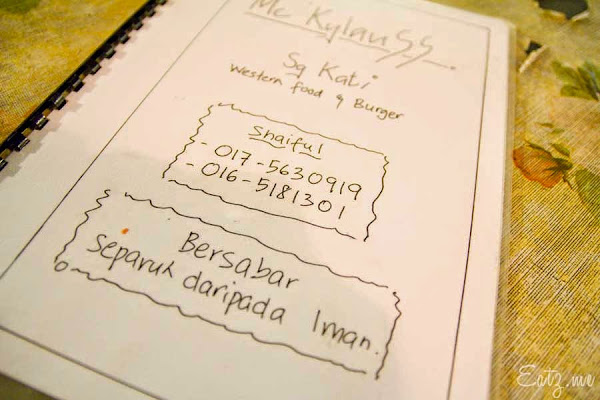 Mc KylauSS.
Sg Kati
Western food & Burger
Shaiful
- 017-5630919
- 016-5181301
Bersabar
Separuh daripada Iman.
Eatz.me